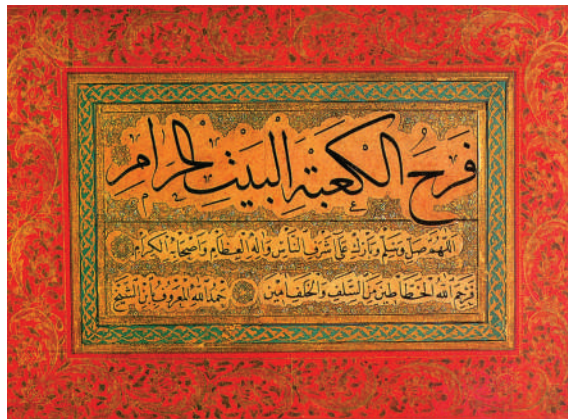 فرح الكعبة البيت الحرام
اللهم صل وسلم وبارك على اشرف الناس واله العظام واصحابه الكرام
الله الخطاطين من السلف والخلف امين حمد الله المعروف بابن الشيخ